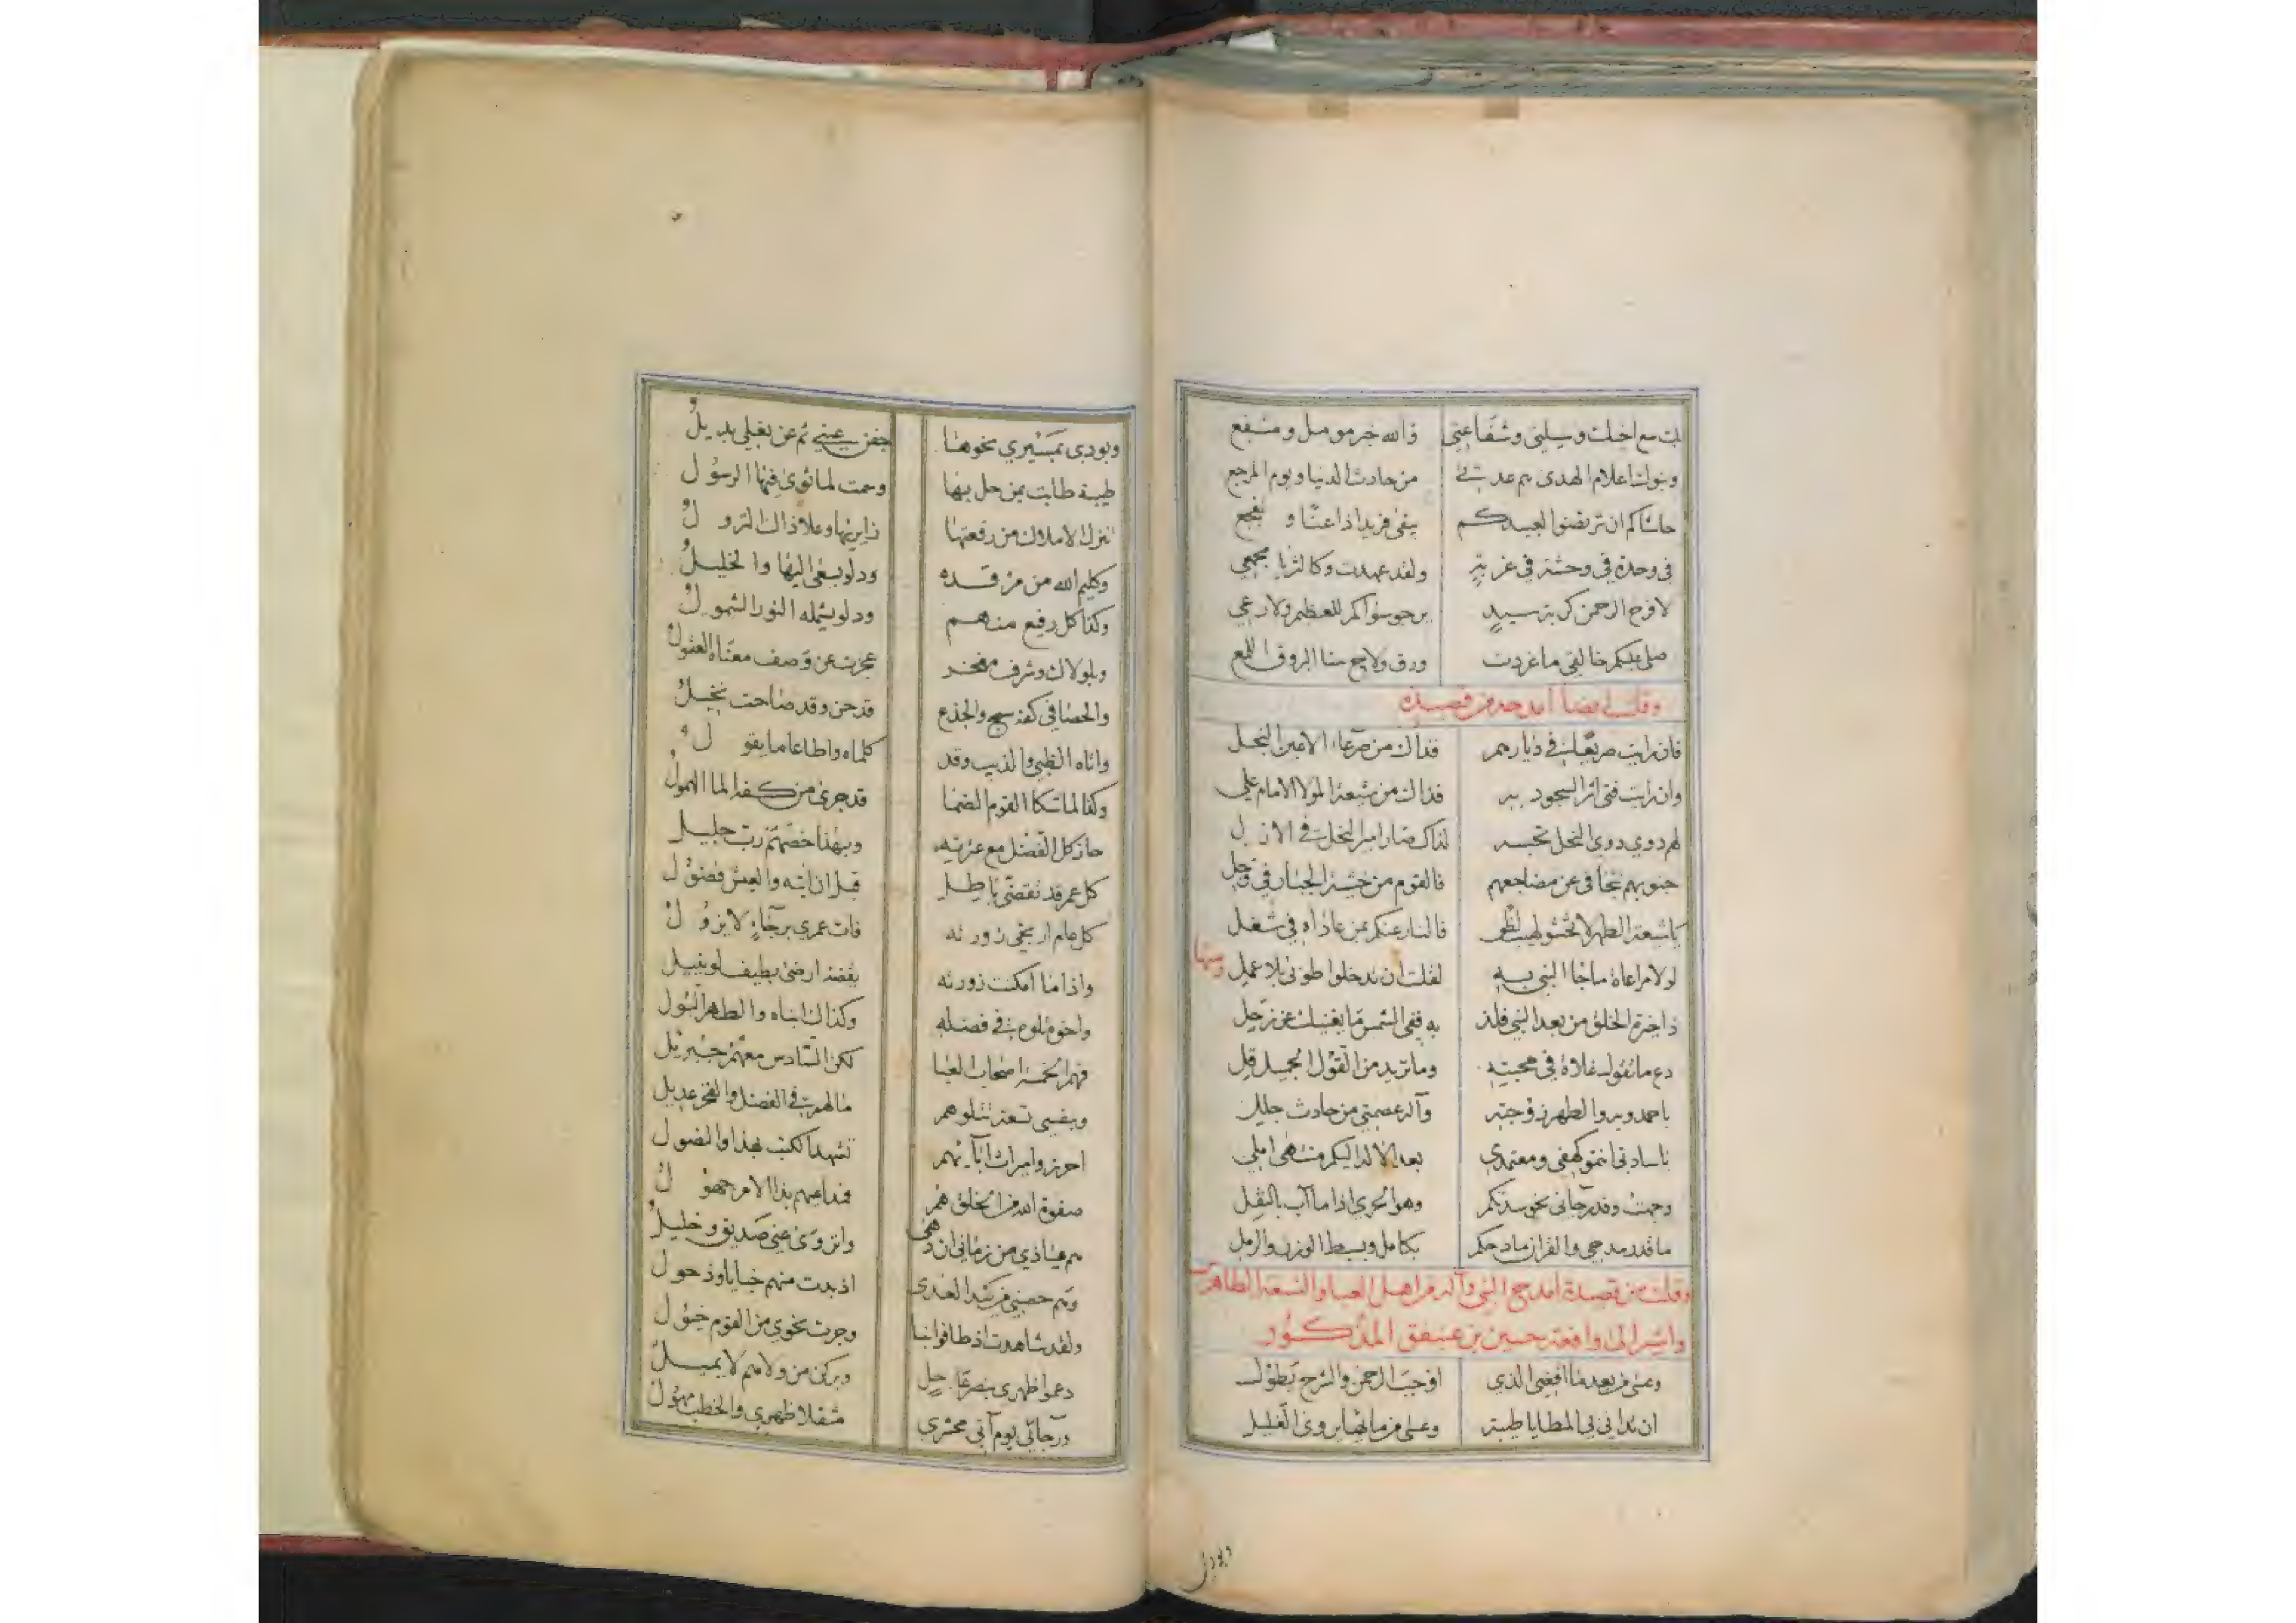 انت مع اخيك وسيلتي وشفاعتي والله خير مومل ومشفع
وبنوك اعلام الهدى هم عدتي من حادث الدنيا ويوم المرجع
حاشاكم ان ترتضوا لعبيدكم يبقى فريدا ذا عنا و تفجع
في وحدة في وحشة في غربة ولقد عهدت وكالثريا مجمعي
لافرج الرحمن كربة سيد يرجو سواكم للعظيم ولا رعي
صلى عليكم خالقي ما غردت ورق ولاح سنا البروق اللمع
وقلت ايضا امدحه من قصيدة
فان رايت صريعا في ديارهم فذاك من صرعاء الاعين النجل
وان رايت فتى اثر السجود به فذاك من شيعة المولا الامام علي
لهم دوي دوي النحل تحسبه لذاك صار امير النحل في الازل
جنوبهم تتجافى عن مضاجعهم فالقوم من خشية الجبار في وجل
يا شيعة الطهر لا تخشوا لهيب لظى فالنار عنكم بمن عاداه في شغل
لولا مراعاة ما جا النبي به لقلت ان تدخلوا طوبى بلا عمل
ومنها
ذا خيرة الخلق من بعد النبي فلذ به ففي الشمس ما يغنيك عن زحل
دع ما تقول غلاة في محبته وما تريد من القول الجميل قل
يا احمد وبه والطهر زوجته وآله عصمتي من حادث جلل
يا سادتي انتمو كهفي ومعتمدي بعد الاله اليكم منتهى املي
وجهت وفد رجائي نحو سدتكم وهو الحري اذا ما آب بالنفل
ما قدر مدحي والقران مادحكم بكامل وبسيط الوزن والرمل
وقلت من قصيدة امدح النبي وآله من اهل العبا والتسعة الطاهرين
واشير الى واقعة حسين بن المذكور
وعلى من بعدها افيى الذي اوجب الرحمن والشرح يطول
ان تدانى بي المطايا طيبة وعلى من ماتها يروى الغليل
وبودي
وبودي بمسيري نحوها جفن عيني ثم عن بغلي بديل
طيبة طابت بمن حل بها وسمت لما ثوى فيها الرسول
تنزل الاملاك من رفعتها زايريها وعلا ذاك النزول
وكليم الله من مرقده ود لو يسعى اليها والخليل
وكذا كل رفيع منهم ود لو يشمله النور الشمول
وبلولاك وشرف مفخر عجزت عن وصف معناه العقول
والحصا في كفه سبح والجذع قد حن وقد صاحت نخيل
واتاه الظبي والذيب وقد كلماه واطاعا ما يقول
وكفا لما شكا القوم الضما قد جرى من كفه الما الهمول
حاز كل الفضل مع عترته وبهذا خصهم رب جليل
كل عمر قد تقضى باطل قبل ان اته والعيش فضول
كل عام ارتجي زورته فات عمري برجاء لا يزول
واذا ما امكنت زورته بقضه ارضى بطيف لو ينيل
واخوه تلوه في فضله وكذاك ابناه والطهر البتول
فهم الخمسة اصحاب العبا لكن السادس معهم جبرئيل
وبنفسي تسعة تتلوهم ما لهم في الفضل والفخر عديل
احرزوا ميراث آبائهم تشهد الكتب بهذا والنصول
صفوة الله من الخلق هم فمداعيهم بذا الامر جهول
هم عياذي من زماني ان دهى وانزوى عني صديق وخليل
وهم حصني من كيد العدى اذ بدت منهم خبايا وذحول
ولقد شاهدت اذ طافوا بنا وجرت نحوي من القوم خيول
دعموا ظهري بصرعا وبركن من ولاهم لا يميل
ورجائي يوم آتي محشري مثقلا ظهري والخطب مهول